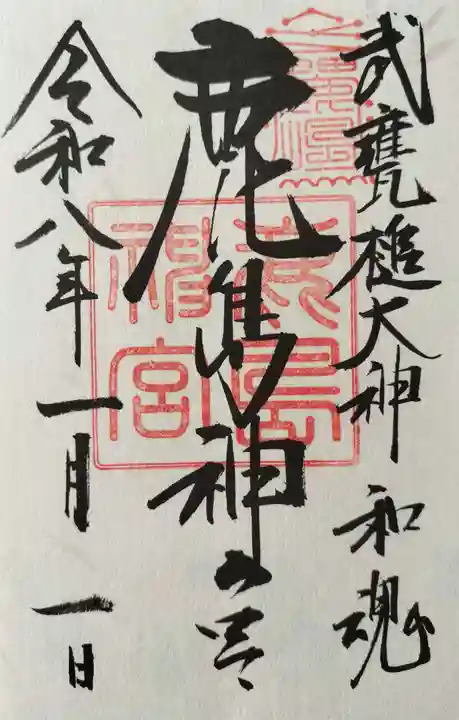 武甕槌大神 和魂
鹿島神宮
令和八年一月一日
鹿島
神宮